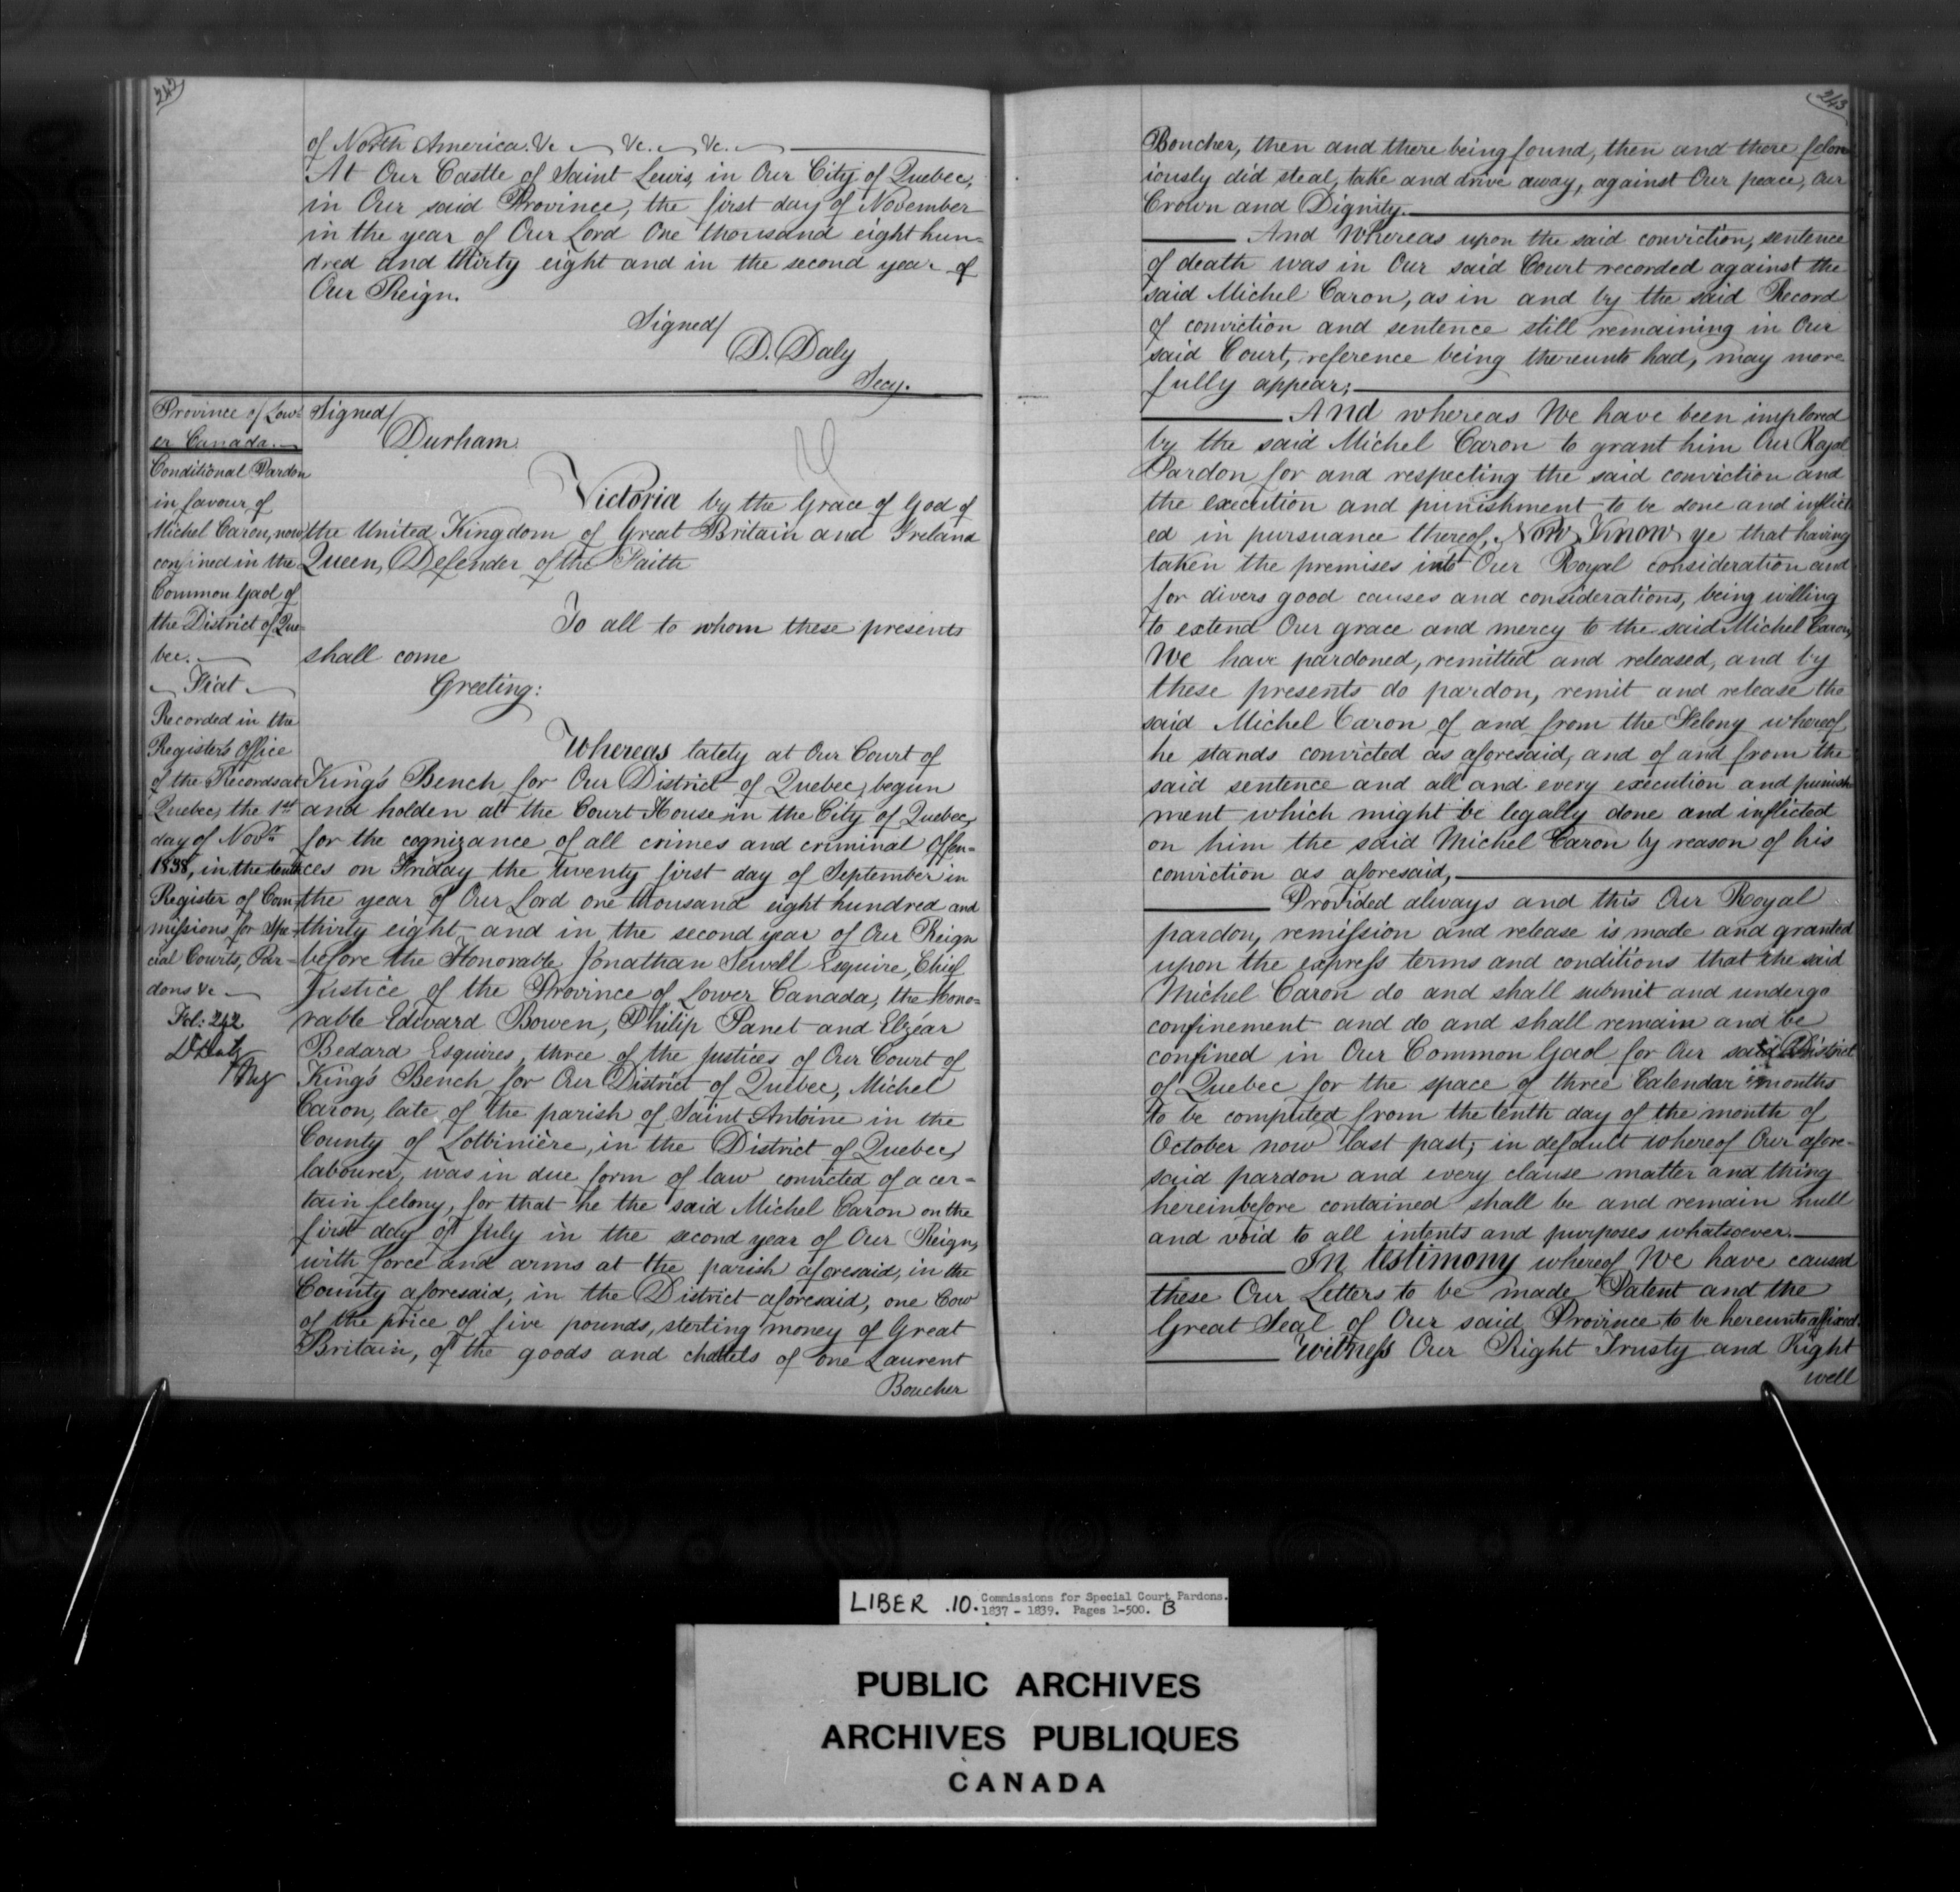 242
of North America. &c &c. &c.
At Our Castle of Saint Lewis, in Our City of Quebec,
in Our said Province, the first day of November
in the year of Our Lord One thousand eight hun=
dred and thirty eight and in the second year of
Our Reign.
Signed/
D. Daly
Secy.
Province of Low=
er Canada.
Conditional Pardon
in favour of
Michel Caron, now
confined in the
Common Gaol of
the District of Que=
bec.
Fiat
Recorded in the
Register's Office
of the Records at
Quebec, the 1st
day of Novr.
1838, in the tenth
Register of Com=
missions for Spe=
cial Courts, Par=
dons &c
Fol: 242
D Daly
Reg
Signed/
Durham
Victoria by the Grace of God of
the United Kingdom of Great Britain and Ireland
Queen, Defender of the Faith
To all to whom these presents
shall come
Greeting:
Whereas lately at Our Court of
King's Bench for Our District of Quebec, begun
and holden at the Court House in the City of Quebec,
for the cognizance of all crimes and criminal Offen=
ces on Friday the twenty first day of September in
the year of Our Lord one thousand eight hundred and
thirty eight and in the second year of Our Reign
before the Honorable Jonathan Sewell Esquire, Chief
Justice of the Province of Lower Canada, the Hono=
rable Edward Bowen, Philip Panet and Elzéar
Bedard Esquires, three of the Justices of Our Court of
King's Bench for Our District of Quebec, Michel
Caron, late of the parish of Saint Antoine in the
County of Lotbinière, in the District of Quebec,
labourer, was in due form of law convicted of a cer=
tain felony, for that he the said Michel Caron on the
first day of July in the second year of Our Reign,
with force and arms at the parish aforesaid, in the
County aforesaid, in the District aforesaid, one Cow
of the price of five pounds, sterling money of Great
Britain, of the goods and chattels of one Laurent
Boucher
243
Boucher, then and there being found, then and there felon
iously did steal, take and drive away, against Our peace, Our
Crown and Dignity.
And Whereas upon the said conviction, sentence
of death was in Our said Court recorded against the
said Michel Caron, as in and by the said Record
of conviction and sentence still remaining in Our
said Court, reference being thereunto had, may more
fully appear;
And whereas We have been implored
by the said Michel Caron to grant him Our Royal
Pardon for and respecting the said conviction and
the execution and punishment to be done and inflict
ed in pursuance thereof, Now Know ye that having
taken the premises into Our Royal consideration and
for divers good causes and considerations, being willing
to extend Our grace and mercy to the said Michel Caron,
We have pardoned, remitted and released, and by
these presents do pardon, remit and release the
said Michel Caron of and from the Felony whereof
he stands convicted as aforesaid, and of and from the
said sentence and all and every execution and punish
ment which might be legally done and inflicted
on him the said Michel Caron by reason of his
conviction as aforesaid,
Provided always and this Our Royal
pardon, remission and release is made and granted
upon the express terms and conditions that the said
Michel Caron do and shall submit and undergo
confinement and do and shall remain and be
confined in Our Common Gaol for Our said District
of Quebec for the space of three Calendar months
to be computed from the tenth day of the month of
October now last past; in default whereof Our afore=
said pardon and every clause matter and thing
hereinbefore contained shall be and remain null
and void to all intents and purposes whatsoever.
In testimony whereof We have caused
these Our Letters to be made Patent and the
Great Seal of Our said Province to be hereunto affixed.
Witness Our Right Trusty and Right
well
LIBER .10. Commissions for Special Court Pardons.
1837 - 1839. Pages 1-500. B
PUBLIC ARCHIVES
ARCHIVES PUBLIQUES
CANADA